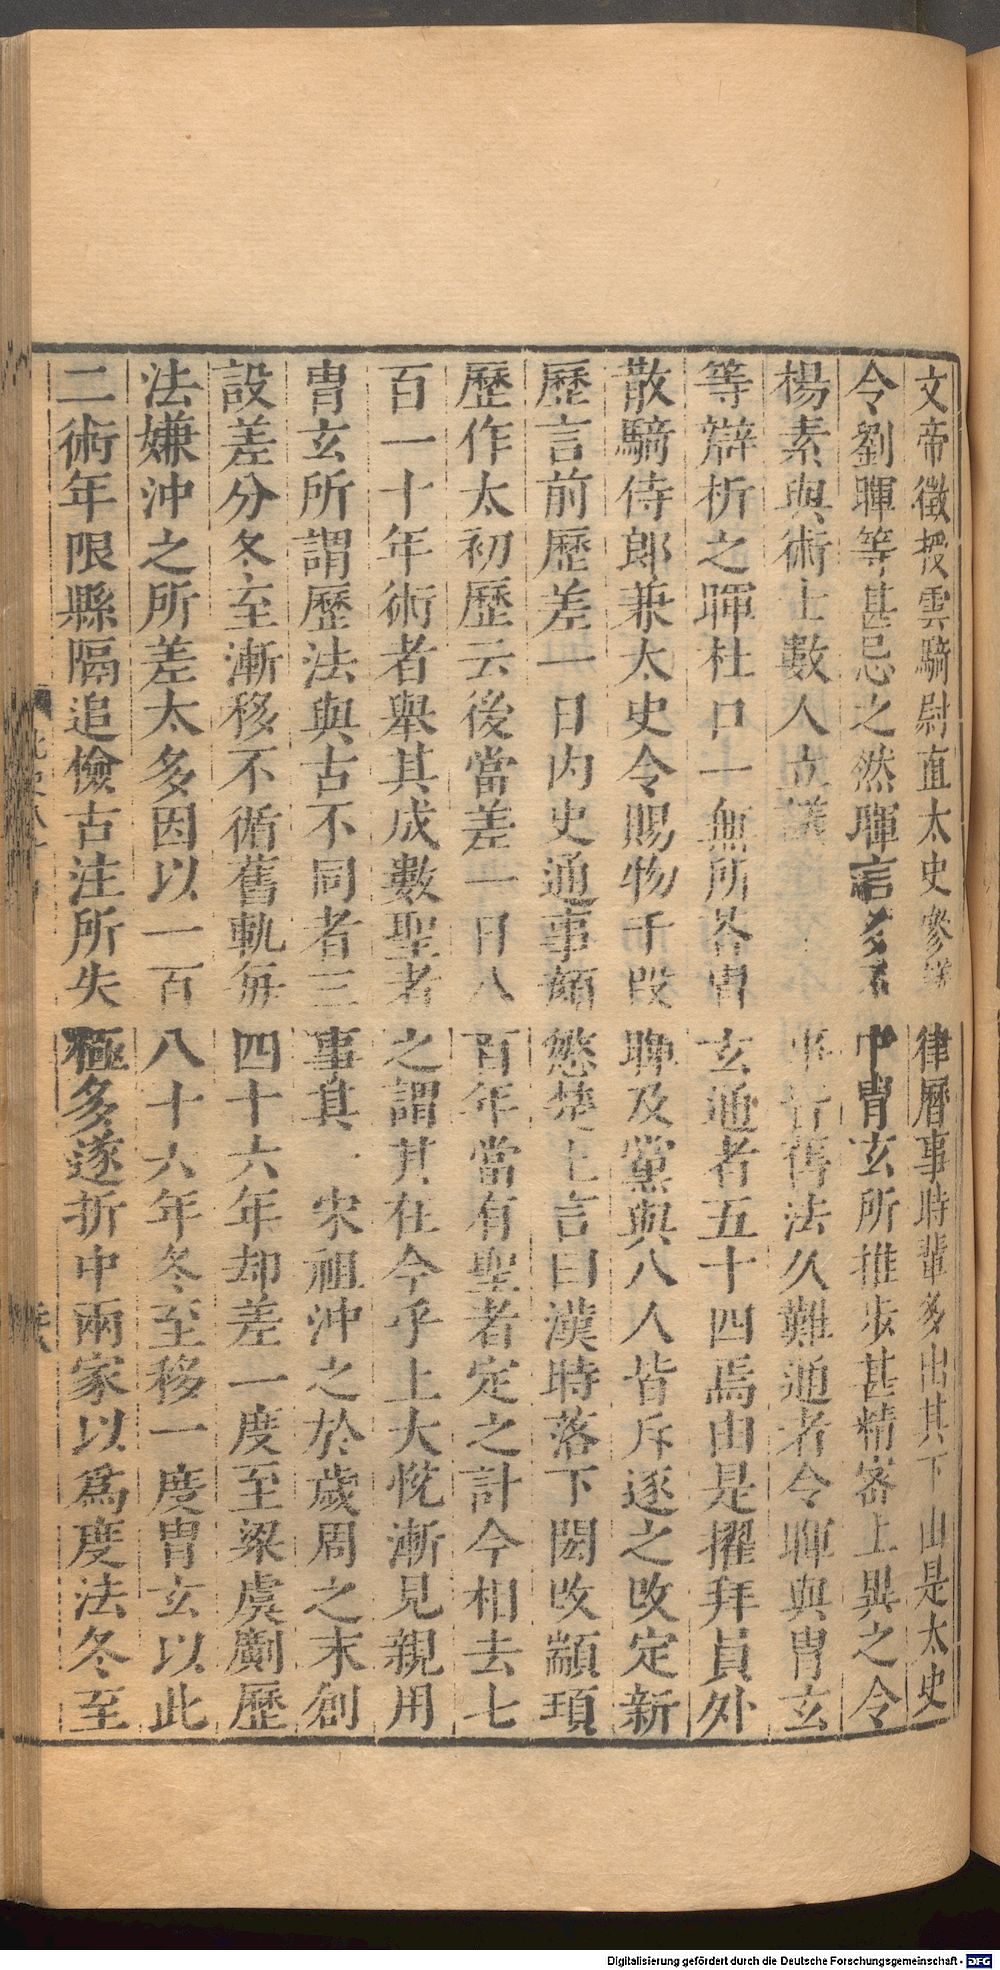 文帝徵授雲騎尉直太史參議律曆事時輩多出其下由是太史
令劉暉等甚忌之然暉言多不中胄玄所推步甚精密上異之令
楊素與術士數人立議六十一事皆舊法久難通者令暉與胄玄
等辯析之暉杜口一無所荅胄玄通者五十四焉由是擢拜員外
散騎侍郎兼太史令賜物千段暉及黨與八人皆斥逐之改定新
歷言前歷差一日內史通事顏慜楚上言曰漢時落下閎改顓頊
歷作太初歷云後當差一日八百年當有聖者定之計今相去七
百一十年術者舉其成數聖者之謂其在今乎上大悅漸見親用
胄玄所謂歷法與古不同者三事其一宋祖沖之於歲周之末創
設差分冬至漸移不循舊軌每四十六年却差一度至梁虞𠠎歷
法嫌沖之所差太多因以一百八十六年冬至移一度胄玄以此
二術年限縣隔追儉古注所失極多遂折中兩家以爲度法冬至
Digitalisierung gefördert durch die Deutsche Forschungsgemeinschaft - DFG